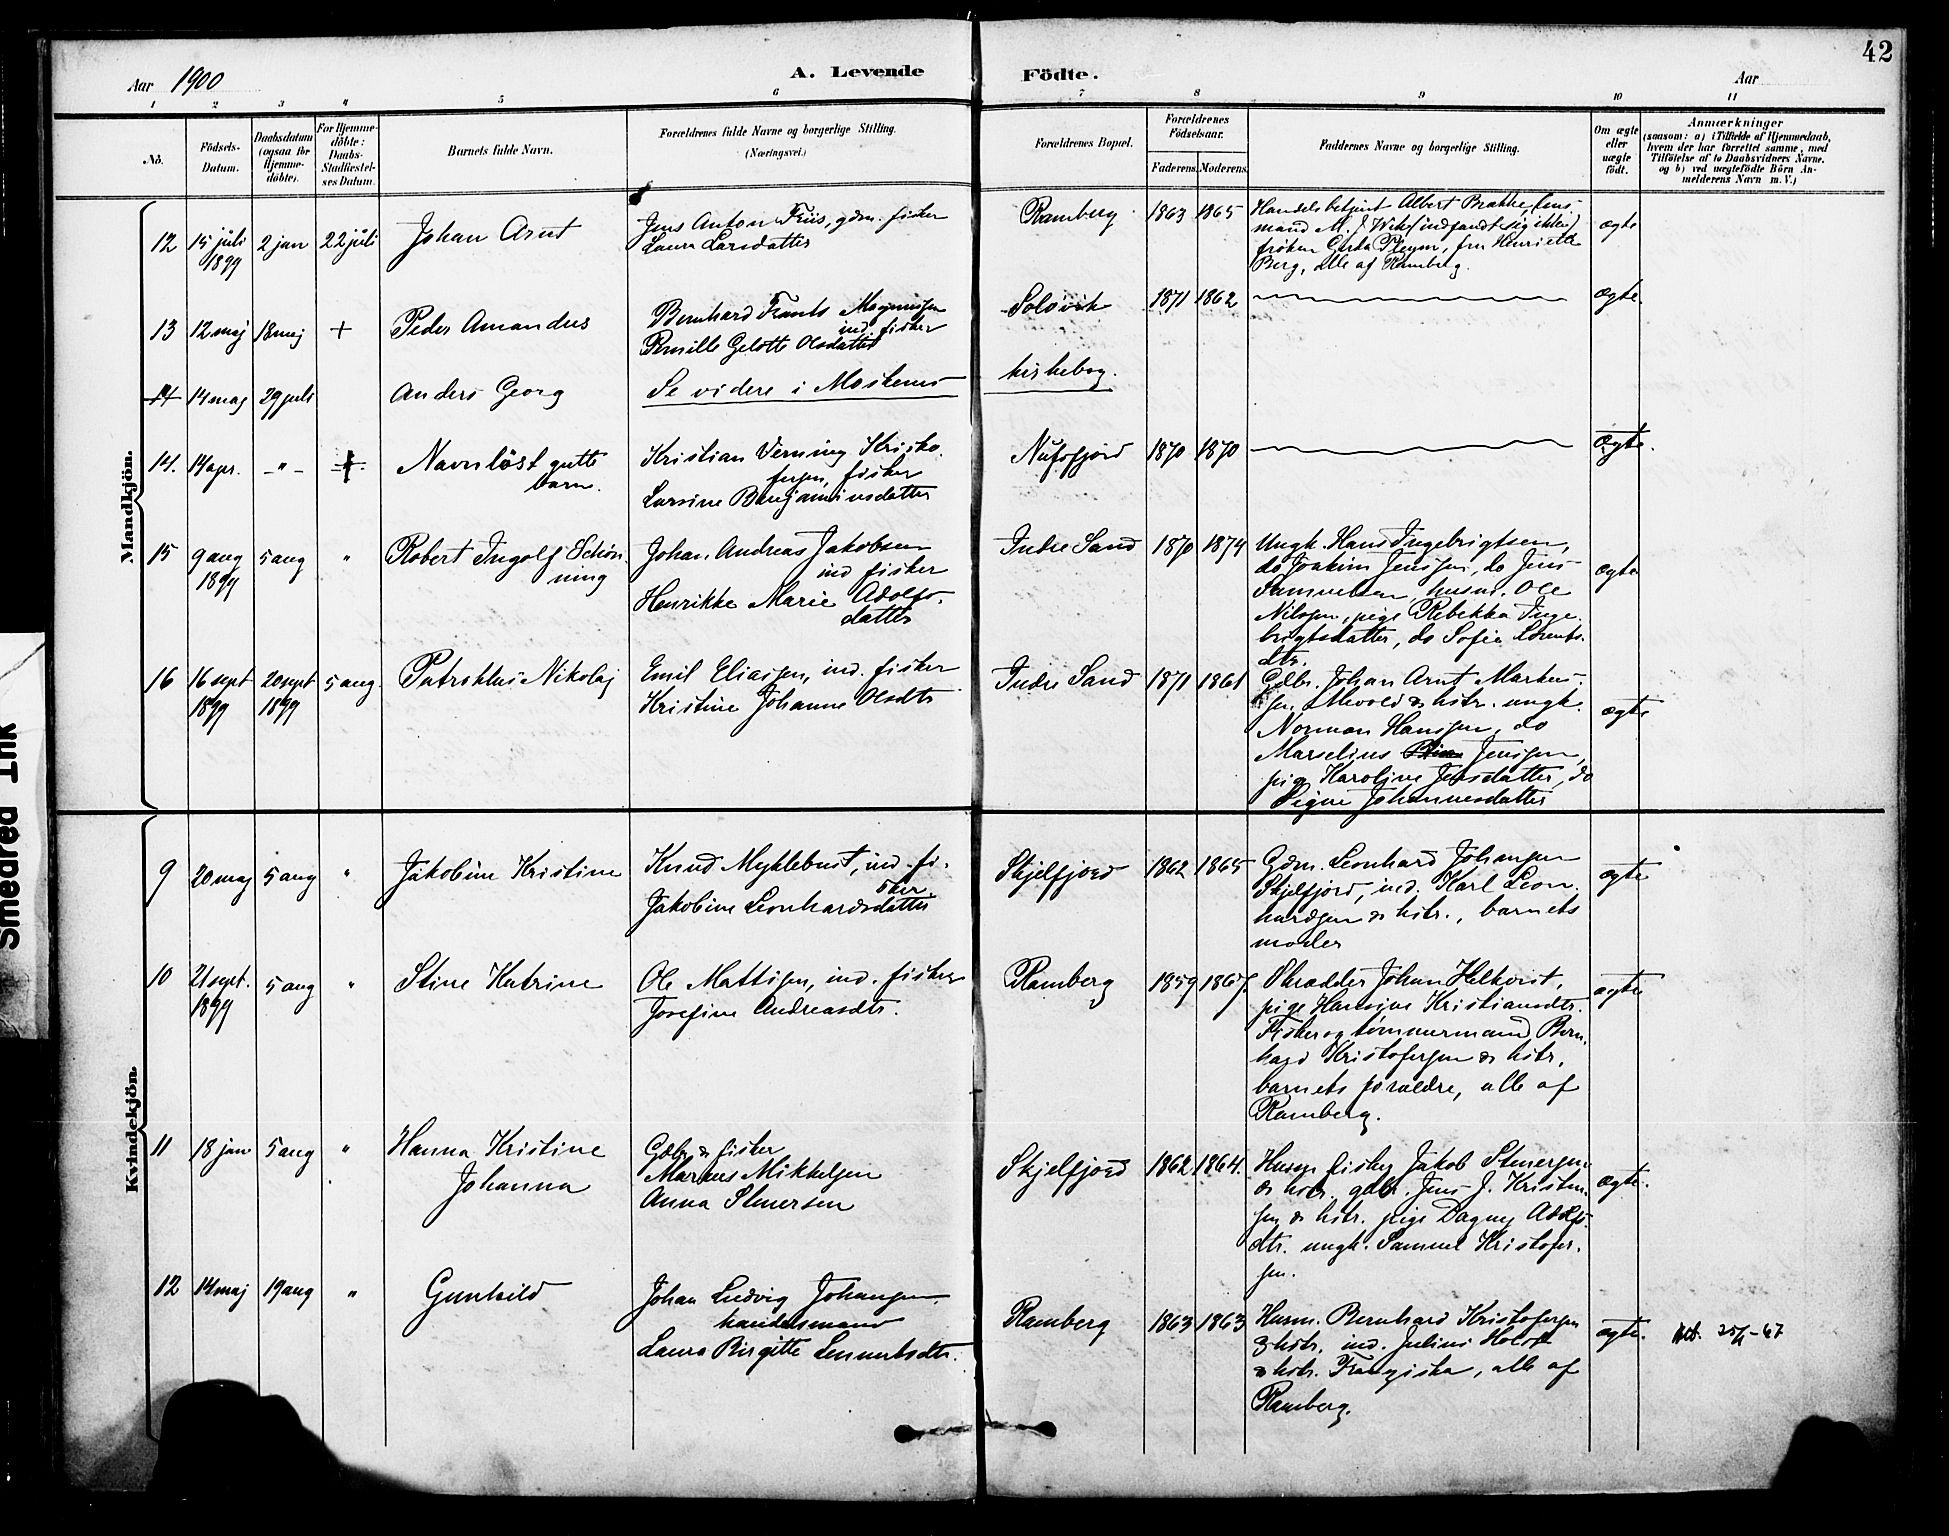 42
Aar 1900
A. Levende Födte.
Aar
1 2 3 4 5 6 7 8 9 10 11
No.
Födsels-
Datum.
Daabsdatum
(ogsaa for
Hjemme-
döbte).
For Hjemme-
döbte:
Daabs-
Stadfæstel-
ses Datum.
Barnets fulde Navn.
Forældrenes fulde Navne og borgerlige Stilling.
(Næringsvei.)
Forældrenes Bopæl.
Forældrenes
Födselsaar.
Faderens. Moderens.
Faddernes Navne og borgerlige Stilling.
Om ægte
eller
uægte
födt.
Anmærkninger
(saasom: a) i Tilfælde af Hjemmedaab,
hvem der har forrettet samme, med
Tilföielse af to Daabsvidners Navne.
og b) ved uægtefödte Börn An-
melderens Navn m. V.)
Mandkjön.
12 15 juli 1899 2 jan 22 juli
Johan Arnt
Jens Anton Friis, gdm. fisker
Laura Larsdatter
Ramberg 1863 1865
Handelsbetjent Albert Brathe, lens-
mand M. J. Wik (indfandt sig ikke)
frøken Gerda Pleym, fru Henriette
Berg, alle af Ramberg.
ægte
13 12 maj 18 maj +
Peder Amandus
Bernhard Frants Magnusen
ind fisker
Pernille Gelotte Olsdatter
Solovik 1871 1862
ægte.
14 14 maj 29 juli
Anders Georg
Se videre i Moskenes
kirkebog.
14. 14 apr. -"- +
Navnløst gutte
barn.
Kristian Verning Kristo-
fersen, fisker
Larsine Benjaminsdatter
Nufsfjord 1870 1870
ægte.
15 9 aug 1899 5 aug "
Robert Ingolf Schøn
ning
Johan Andreas Jakobsen
ind fisker
Henrikke Marie Adolfs-
datter
Indre Sand 1870 1874
Ungk. Hans Ingebrigtsen,
do Joakim Jensen, do Jens
Samuelsen, husm. Ole
Nilsen, pige Rebekka Inge-
brigtsdatter, do Sofie Lorents-
dtr.
ægte
16 16 sept 1899 20 sept 1899 5 aug.
Patroklus Nikolaj
Emil Eliasen, ind. fisker
Kristine Johanne Olsdtr
Indre Sand 1871 1861
Gdbr. Johan Arnt Markus-
sen, Mevold & hstr. ungk.
Norman Hansen, do
Marselius Jensen,
pige Karoline Jensdatter, do
Signe Johannesdatter
ægte
Kvindekjön.
9 20 maj 5 aug "
Jakobine Kristine
Knud Myklebust, ind. fi-
sker.
Jakobine Leonhardsdatter
Skjelfjord 1862 1865
Gdm. Leonhard Johansen
Skjelfjord, ind. Karl Leon-
hardsen & hstr., barnets
moder
ægte
10 21 sept. 1899 5 aug "
Stine Katrine
Ole Mattisen, ind. fisker
Josefine Andreasdtr.
Ramberg 1859 1867.
Skrædder Johan Helkvist,
pige Hansine Kristiansdtr.
Fisker og tømmermand Bern-
hard Kristofersen & hstr.
barnets forældre, alle af
Ramberg.
ægte
11 18 jan 5 aug "
Hanna Kristine
Johanna
Gdbr & fisker
Markus Mikkelsen
Anna Stenersen
Skjelfjord 1862. 1864.
Husm. fisker Jakob Stenersen
& hstr. gdbr. Jens J. Kristen-
sen & hstr. pige Dagny Adolfs-
dtr. ungk. Samuel Kristofer-
sen.
ægte.
12 14 maj 19 aug "
Gunhild
Johan Ludvig Johansen,
handelsmand
Laura Birgitte Lennertsdtr.
Ramberg 1863 1863
Husm. Bernhard Kristofersen
& hstr. ind. Julius Horst
& hstr. Franziska, alle af
Ramberg.
ægte.
Smedred Ink